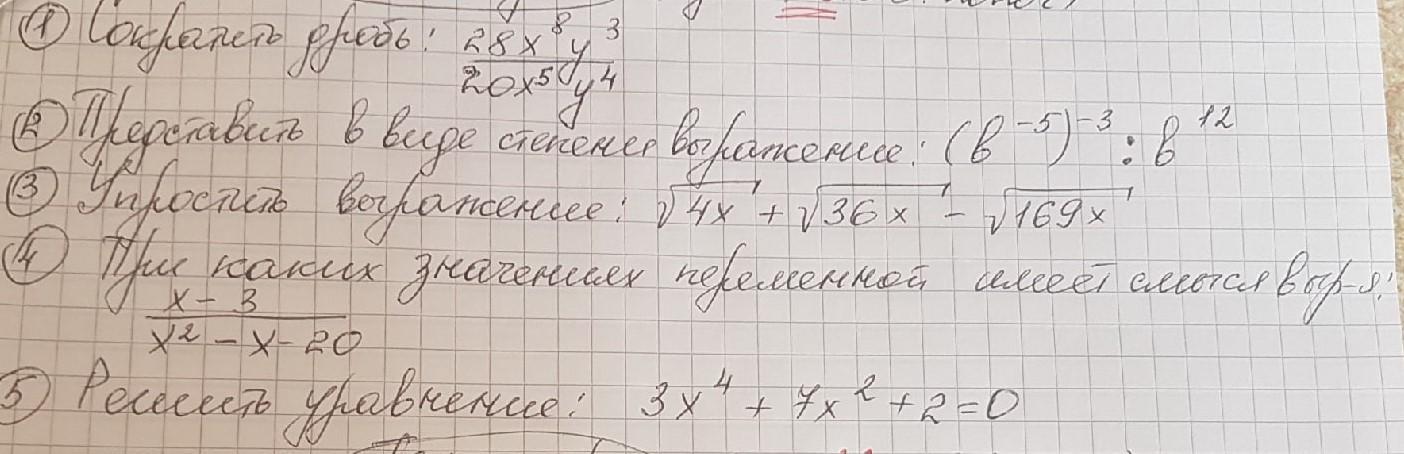 ① Сократить дробь: 28x⁸y³/20x⁵y⁴
② Представить в виде степени выражение: (b⁻⁵)⁻³ : b¹²
③ Упростить выражение: √4x + √36x − √169x
④ При каких значениях переменной имеет смысл выр-я:
x − 3
x² − x − 20
⑤ Решить уравнение: 3x⁴ + 7x² + 2 = 0